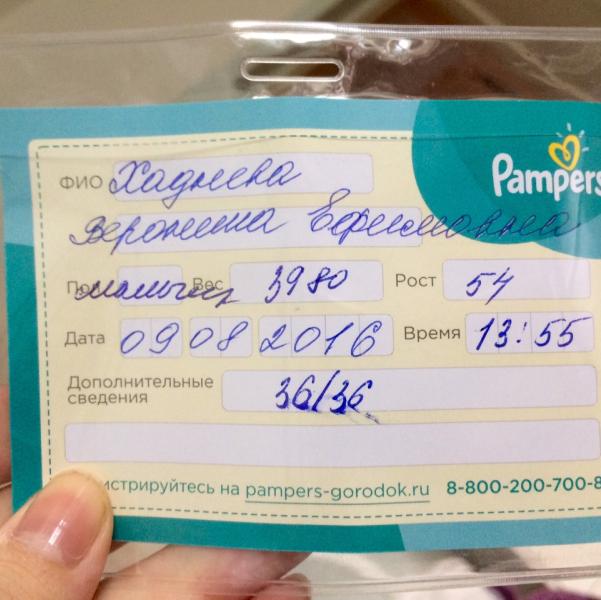 Pampers
ФИО Хаднева
Вероника Ефимовна
Пол мальчик Вес 3980 Рост 54
Дата 09 08 2016 Время 13:55
Дополнительные
сведения 36/36
истрируйтесь на pampers-gorodok.ru 8-800-200-700-8